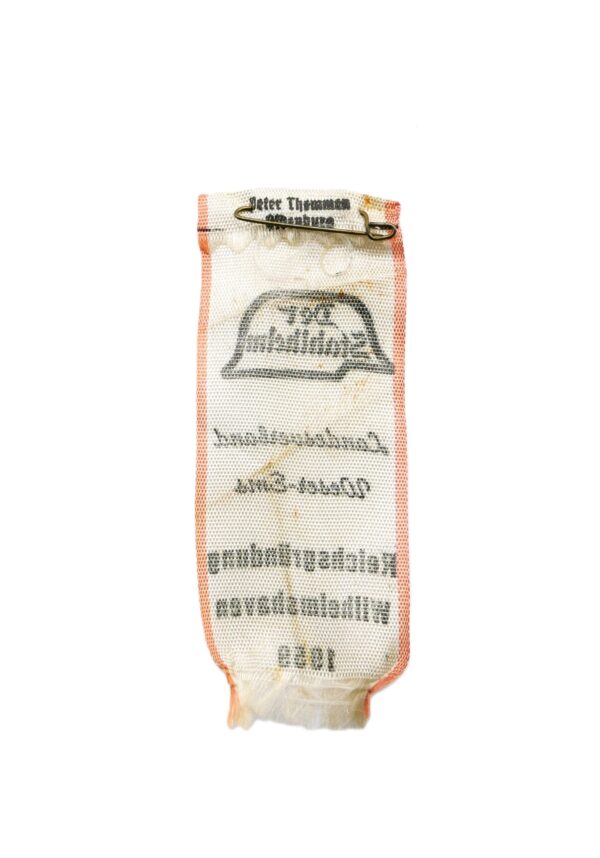 Peter Thommen
Oldenburg
Der
Stahlhelm
Landesverband
Weser-Ems
Reichsgründung
Wilhelmshaven
1959